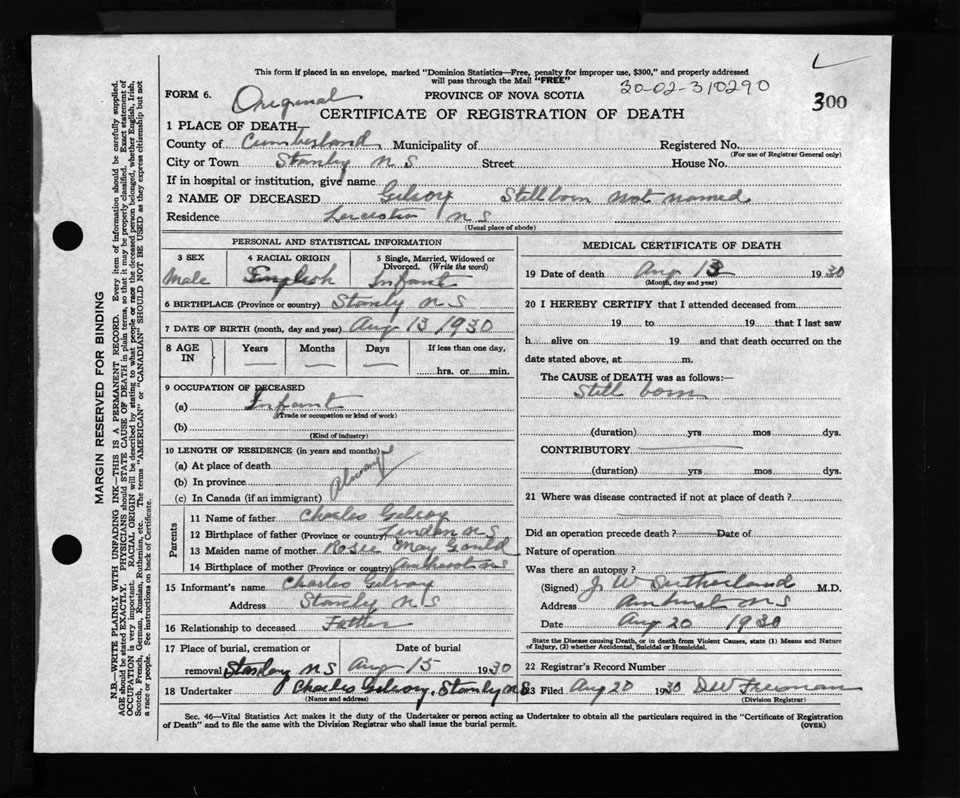 This form if placed in an envelope, marked "Dominion Statistics—Free, penalty for improper use, $300," and properly addressed
will pass through the Mail "FREE"
FORM 6. Original PROVINCE OF NOVA SCOTIA 30-02-310290
CERTIFICATE OF REGISTRATION OF DEATH 300
1 PLACE OF DEATH—
County of Cumberland Municipality of Registered No.
(For use of Registrar General only)
City or Town Stanly N S Street House No.
If in hospital or institution, give name
2 NAME OF DECEASED Gilroy Stillborn not named
Residence Leicester N S
(Usual place of abode)
PERSONAL AND STATISTICAL INFORMATION
3 SEX 4 RACIAL ORIGIN 5 Single, Married, Widowed or
Divorced. (Write the word)
Male English Infant
6 BIRTHPLACE (Province or country) Stanly N S
7 DATE OF BIRTH (month, day and year) Aug 13 1930
8 AGE IN Years Months Days If less than one day,
hrs. or min.
9 OCCUPATION OF DECEASED
(a) Infant
(Trade or occupation or kind of work)
(b)
(Kind of industry)
10 LENGTH OF RESIDENCE (in years and months)
(a) At place of death
(b) In province Always
(c) In Canada (if an immigrant)
Parents
11 Name of father Charles Gilroy
12 Birthplace of father (Province or country) Linden N S
13 Maiden name of mother Rosie May Gould
14 Birthplace of mother (Province or country) Amherst N S
15 Informant's name Charles Gilroy
Address Stanly N S
16 Relationship to deceased Father
17 Place of burial, cremation or Date of burial
removal Stanley N S Aug 15 1930
18 Undertaker Charles Gilroy, Stanly N S
(Name and address)
MEDICAL CERTIFICATE OF DEATH
19 Date of death Aug 13 1930
(Month, day and year)
20 I HEREBY CERTIFY that I attended deceased from
19 to 19 that I last saw
h alive on 19 and that death occurred on the
date stated above, at m.
The CAUSE of DEATH was as follows:—
Still born
(duration) yrs mos dys.
CONTRIBUTORY
(duration) yrs mos dys.
21 Where was disease contracted if not at place of death?
Did an operation precede death? Date of
Nature of operation
Was there an autopsy?
(Signed) J. W Sutherland M.D.
Address Amherst N S
Date Aug 20 1930
State the Disease causing Death, or in death from Violent Causes, state (1) Means and Nature
of Injury, (2) whether Accidental, Suicidal or Homicidal.
22 Registrar's Record Number
23 Filed Aug 20 1930 D W Freeman
(Division Registrar)
Sec. 46—Vital Statistics Act makes it the duty of the Undertaker or person acting as Undertaker to obtain all the particulars required in the "Certificate of Registration
of Death" and to file the same with the Division Registrar who shall issue the burial permit. (OVER)
MARGIN RESERVED FOR BINDING
N.B.—WRITE PLAINLY WITH UNFADING INK—THIS IS A PERMANENT RECORD. Every item of information should be carefully supplied.
AGE should be stated EXACTLY. PHYSICIANS should STATE CAUSE OF DEATH in plain terms, so that it may be properly classified. Exact statement of
OCCUPATION is very important. RACIAL ORIGIN will be described by stating to what people or race the deceased person belonged, whether English, Irish,
Scotch, French, German, Russian, Ruthenian, etc. The terms "AMERICAN" or "CANADIAN" SHOULD NOT BE USED as they express citizenship but not
a race or people. See instructions on back of Certificate.